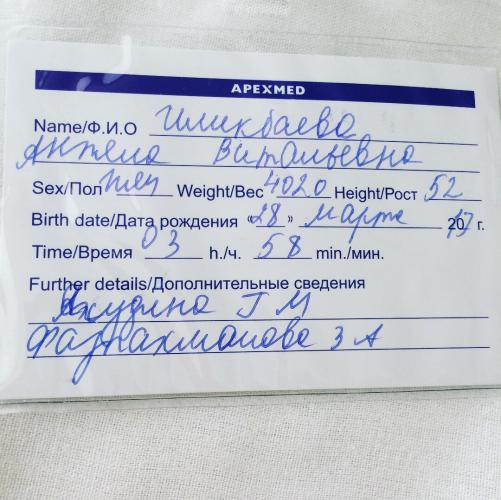 APEXMED
Name/Ф.И.О Иликбаева
Анжела Витальевна
Sex/Пол жен Weight/Вес 4020 Height/Рост 52
Birth date/Дата рождения «28» марта 2017 г.
Time/Время 03 h./ч. 58 min./мин.
Further details/Дополнительные сведения
Яхудина Г М
Фазрахманова З А